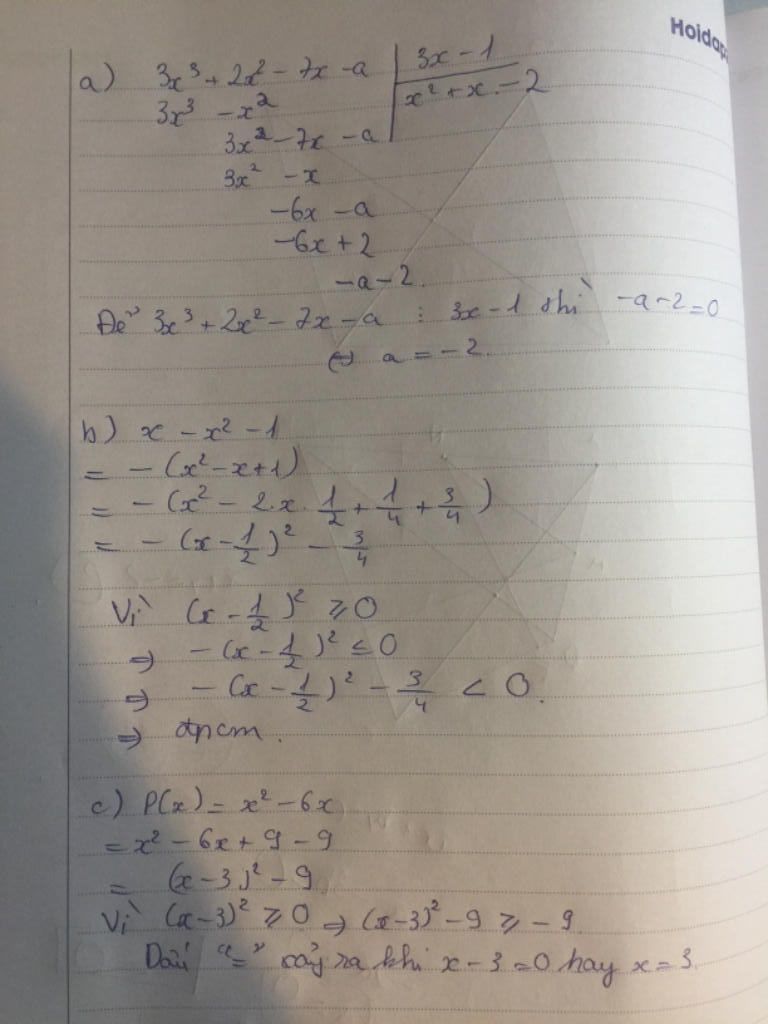 Hoidap
a) 3x³ + 2x² - 7x - a | 3x - 1
3x³ - x² | x² + x - 2
3x² - 7x - a
3x² - x
-6x - a
-6x + 2
-a - 2.
Để 3x³ + 2x² - 7x - a ⋮ 3x - 1 thì -a - 2 = 0
⇔ a = -2.
b) x - x² - 1
= - (x² - x + 1)
= - (x² - 2.x. 1/2 + 1/4 + 3/4)
= - (x - 1/2)² - 3/4
Vì (x - 1/2)² ⩾ 0
⇒ - (x - 1/2)² ≤ 0
⇒ - (x - 1/2)² - 3/4 < 0.
⇒ đpcm.
c) P(x) = x² - 6x
= x² - 6x + 9 - 9
= (x - 3)² - 9
Vì (x - 3)² ⩾ 0 ⇒ (x - 3)² - 9 ⩾ - 9
Dấu "=" xảy ra khi x - 3 = 0 hay x = 3.